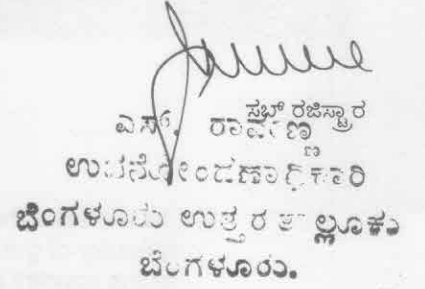 ಸಬ್ ರಜಿಸ್ಟ್ರಾರ
ಎಸ್. ರಾಮಣ್ಣ
ಉಪನೋಂದಣಾಧಿಕಾರಿ
ಬೆಂಗಳೂರು ಉತ್ತರ ತಾಲ್ಲೂಕು
ಬೆಂಗಳೂರು.